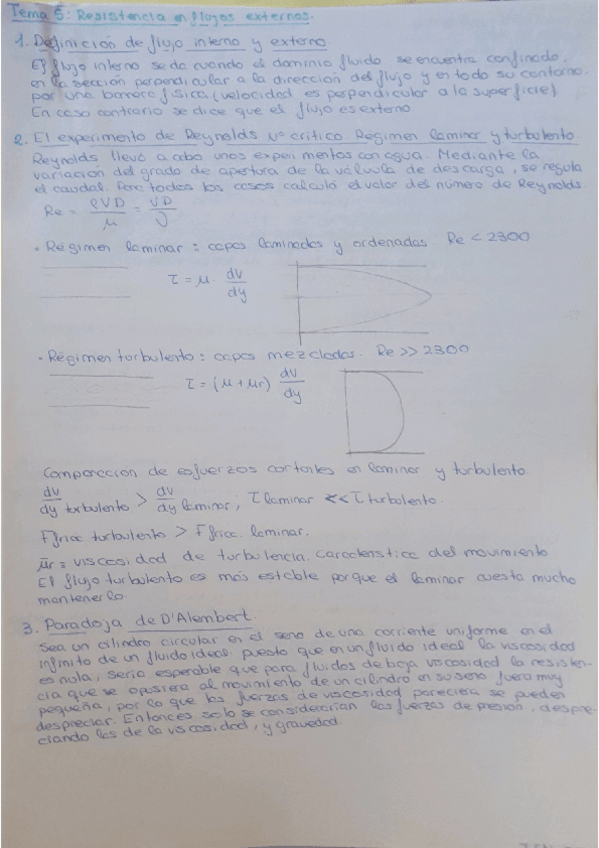 Tema 5: Resistencia en flujos externos.
1. Definición de flujo interno y externo
El flujo interno se da cuando el dominio fluido se encuentra confinado,
en la sección perpendicular a la dirección del flujo y en todo su contorno,
por una barrera física (velocidad es perpendicular a la superficie)
En caso contrario se dice que el flujo es externo.
2. El experimento de Reynolds Nº crítico Régimen laminar y turbulento
Reynolds llevó a cabo unos experimentos con agua. Mediante la
variación del grado de apertura de la válvula de descarga, se regula
el caudal. Para todos los casos calculó el valor del número de Reynolds.
Re = ρVD/μ = VD/ν
· Régimen laminar: capas laminadas y ordenadas. Re < 2300
τ = μ · dv/dy
· Régimen turbulento: capas mezcladas. Re >> 2300
τ = (μ + μr) dv/dy
Comparación de esfuerzos cortantes en laminar y turbulento
dv/dy turbulento > dv/dy laminar; τ laminar << τ turbulento.
Ffricc turbulento > Ffricc. laminar.
μr = viscosidad de turbulencia. Característica del movimiento
El flujo turbulento es más estable porque el laminar cuesta mucho
mantenerlo.
3. Paradoja de D'Alembert.
Sea un cilindro circular en el seno de una corriente uniforme en el
infinito de un fluido ideal. puesto que en un fluido ideal la viscosidad
es nula, sería esperable que para fluidos de baja viscosidad la resisten-
cia que se opusiera al movimiento de un cilindro en su seno fuera muy
pequeña, por lo que las fuerzas de viscosidad pareciera se pueden
despreciar. Entonces solo se considerarían las fuerzas de presión, despre-
ciando las de la viscosidad, y gravedad.